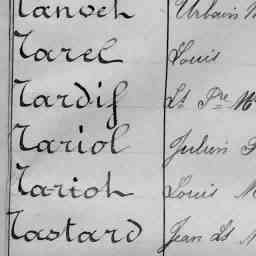 Tanveh Urbain
Tarel Louis
Tardif Lt Pre M
Tariol Julien
Tarioh Louis M
Tastard Jean Lt